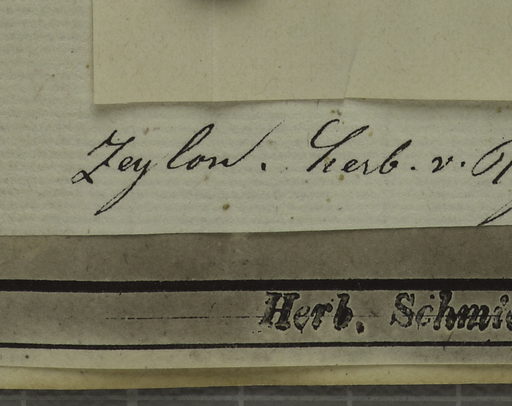 Zeylon. Herb. v.
Herb. Schmi